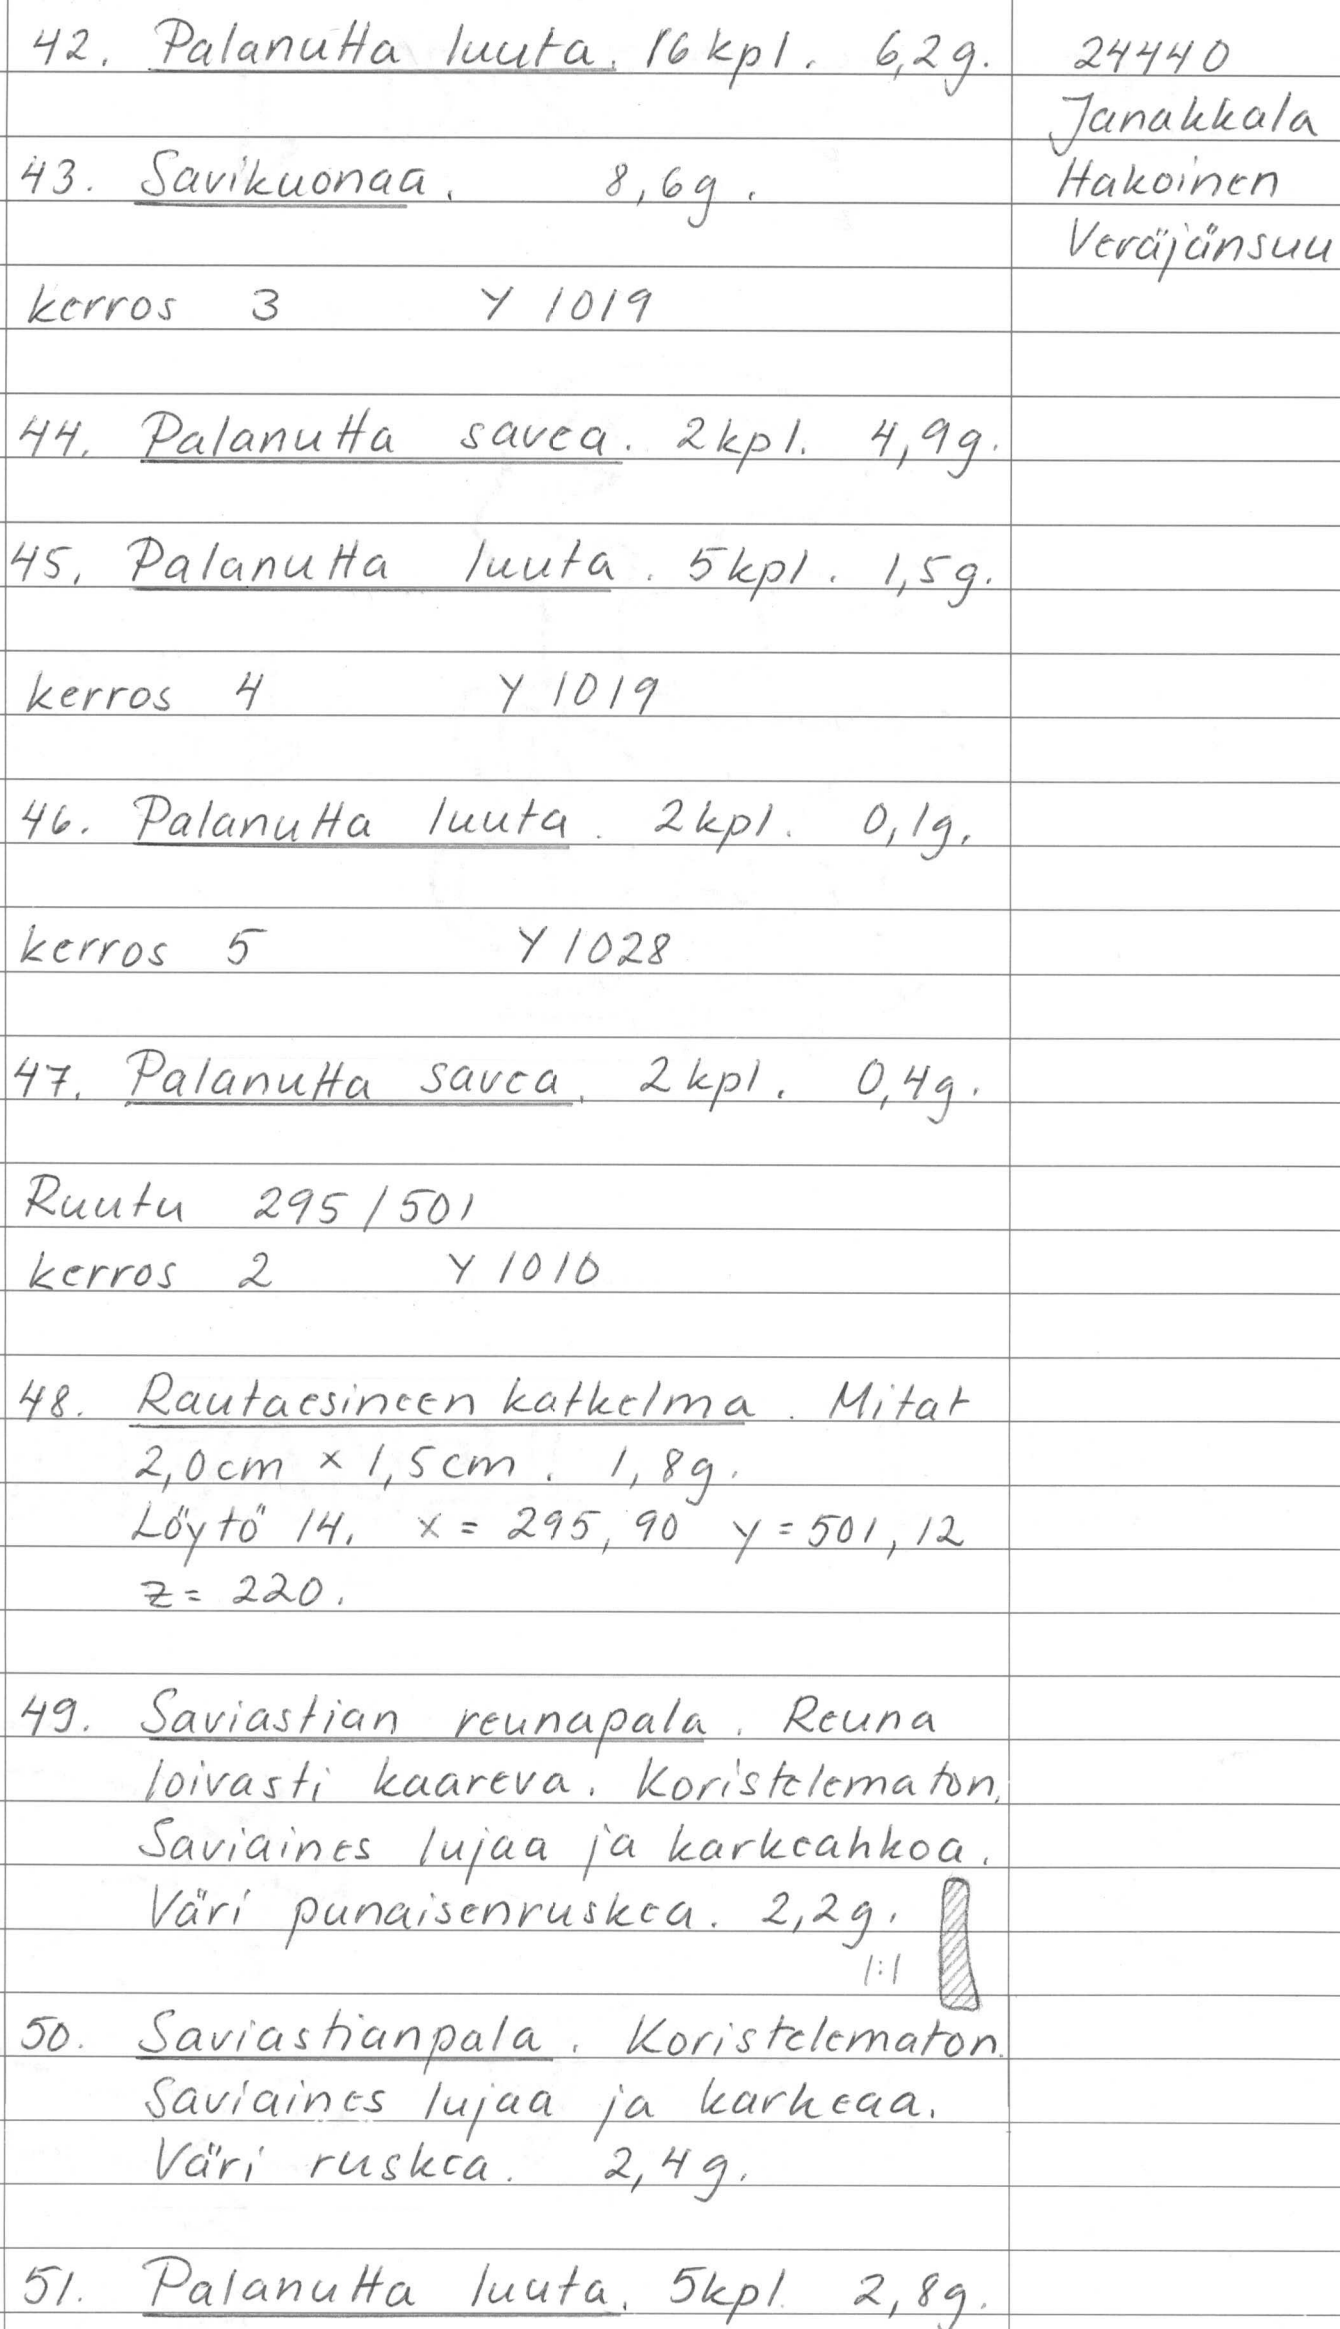 42. Palanutta luuta. 16 kpl. 6,2g.
24440
Janakkala
43. Savikuonaa. 8,6g.
Hakoinen
Veräjänsuu
kerros 3 Y 1019
44. Palanutta savea. 2 kpl. 4,9g.
45. Palanutta luuta. 5 kpl. 1,5g.
kerros 4 Y 1019
46. Palanutta luuta. 2 kpl. 0,1g.
kerros 5 Y 1028
47. Palanutta savea. 2 kpl. 0,4g.
Ruutu 295/501
kerros 2 Y 1010
48. Rautaesineen katkelma. Mitat
2,0cm × 1,5cm. 1,8g.
Löytö 14. x = 295,90 y = 501,12
z = 220.
49. Saviastian reunapala. Reuna
loivasti kaareva. Koristelematon.
Saviaines lujaa ja karkeahkoa.
Väri punaisenruskea. 2,2g.
1:1
50. Saviastianpala. Koristelematon.
Saviaines lujaa ja karkeaa.
Väri ruskea. 2,4g.
51. Palanutta luuta. 5 kpl. 2,8g.